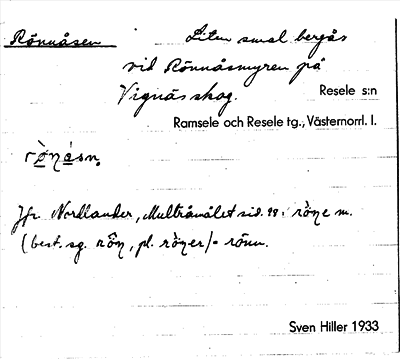 Rönnåsen Liten smal bergås
vid Rönnåsmyren på
Vignäs skog. Resele s:n
Ramsele och Resele tg., Västernorrl. l.
Jfr Nordlander, Multråmålet sid. 98: röne m.
(best. sg. rôn, pl. röner) = rönn.
Sven Hiller 1933